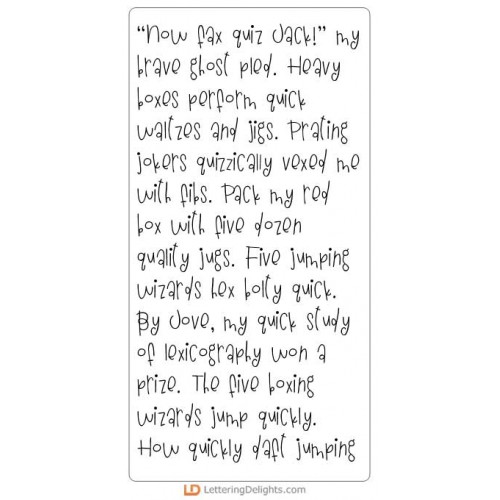 “Now fax quiz Jack!” my
brave ghost pled. Heavy
boxes perform quick
waltzes and jigs. Prating
jokers quizzically vexed me
with fibs. Pack my red
box with five dozen
quality jugs. Five jumping
wizards hex bolty quick.
By Jove, my quick study
of lexicography won a
prize. The five boxing
wizards jump quickly.
How quickly daft jumping
LD LetteringDelights.com